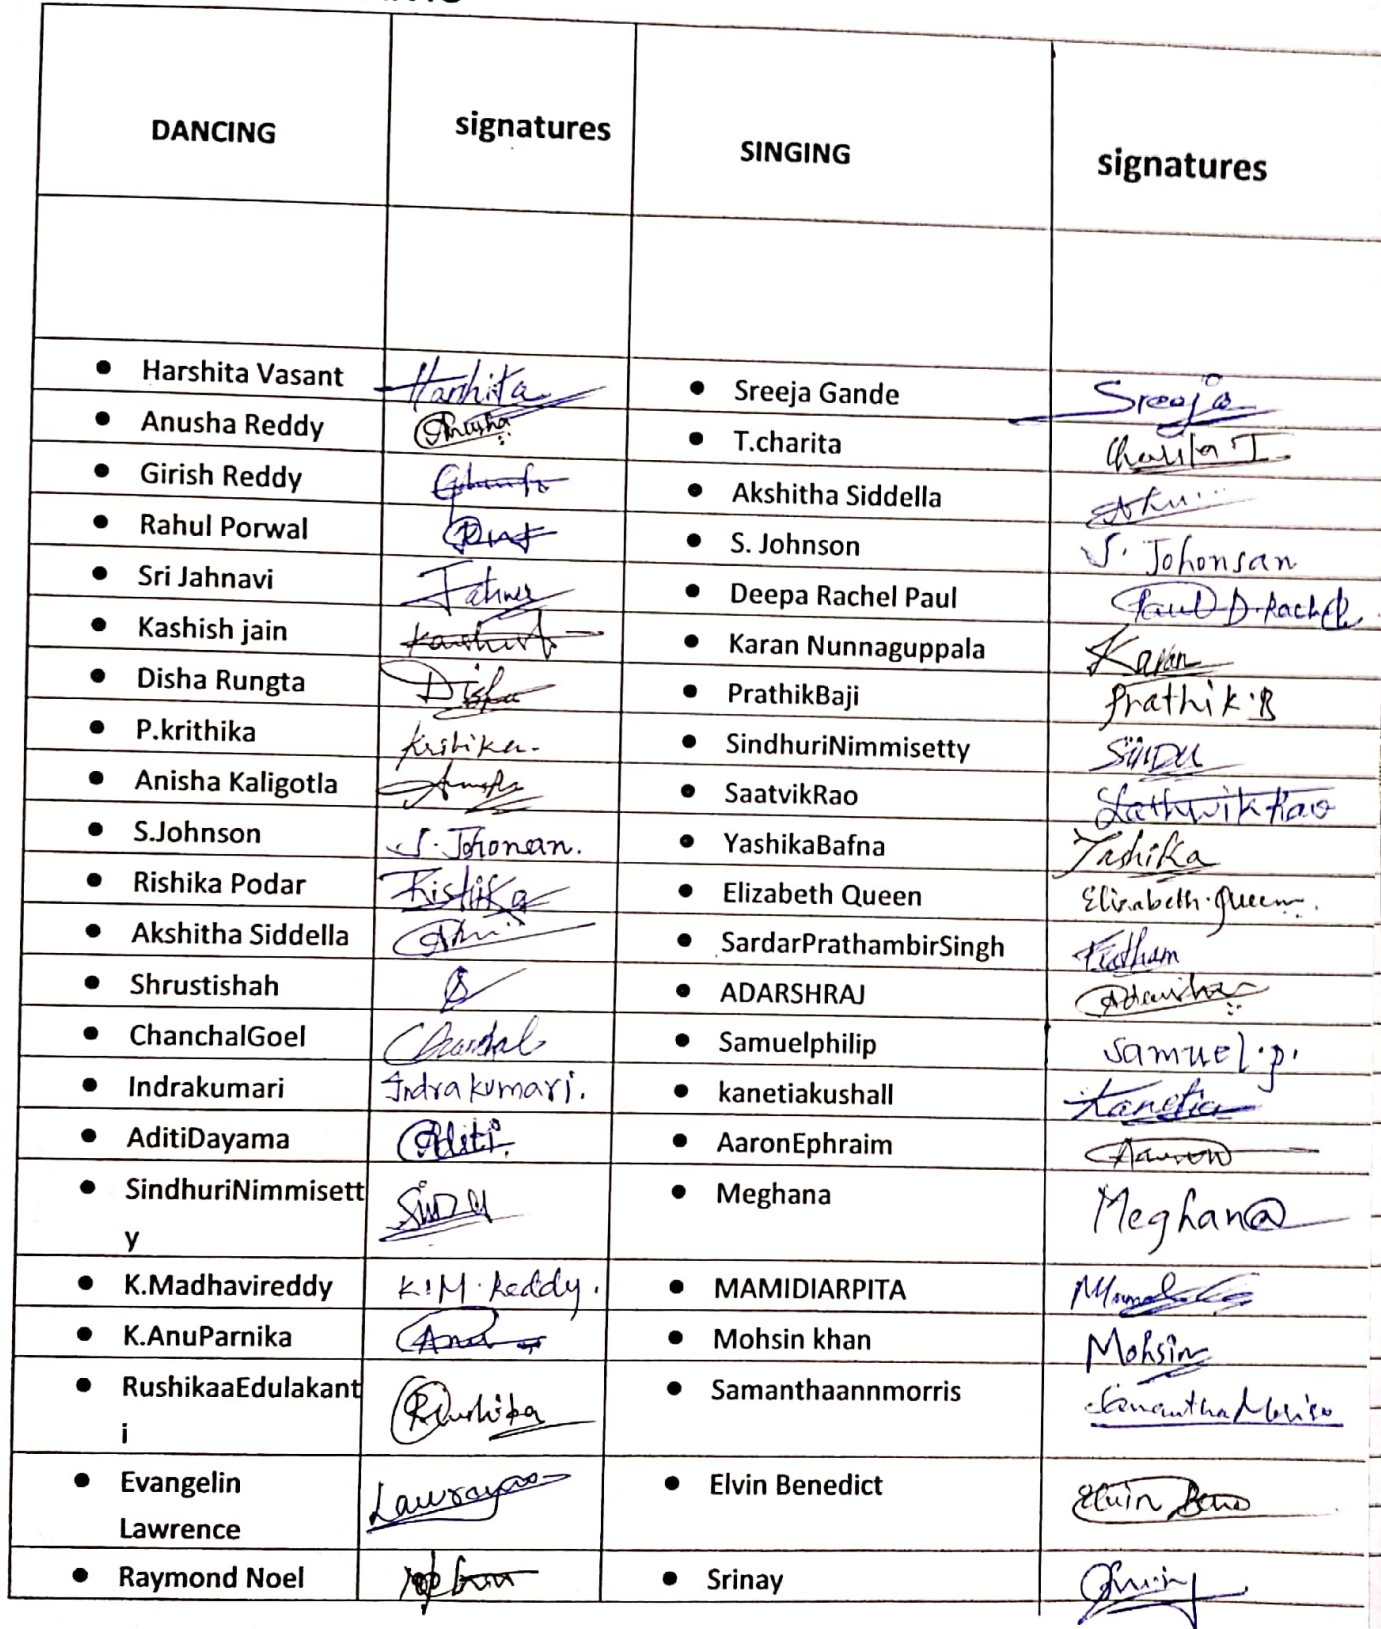 DANCING signatures SINGING signatures
Harshita Vasant Harshita Sreeja Gande Sreeja
Anusha Reddy Anusha T.charita Charita T
Girish Reddy Akshitha Siddella
Rahul Porwal S. Johnson S. Johonsan
Sri Jahnavi Deepa Rachel Paul Paul D. Rachel
Kashish jain Karan Nunnaguppala Karan
Disha Rungta Disha PrathikBaji Prathik.B
P.krithika SindhuriNimmisetty SINDU
Anisha Kaligotla SaatvikRao Sathwik Rao
S.Johnson S. Johonsn. YashikaBafna Yashika
Rishika Podar Rishika Elizabeth Queen Elizabeth.queen.
Akshitha Siddella SardarPrathambirSingh Pratham
Shrustishah ADARSHRAJ
ChanchalGoel Chanchal Samuelphilip Samuel.p.
Indrakumari Indrakumari. kanetiakushall Kanetia
AditiDayama Aditi. AaronEphraim
SindhuriNimmisett SINDU Meghana Meghana
y
K.Madhavireddy K.M.Reddy. MAMIDIARPITA
K.AnuParnika Anu Mohsin khan Mohsin
RushikaaEdulakant Rushika Samanthaannmorris
i
Evangelin Elvin Benedict Elvin
Lawrence
Raymond Noel Srinay